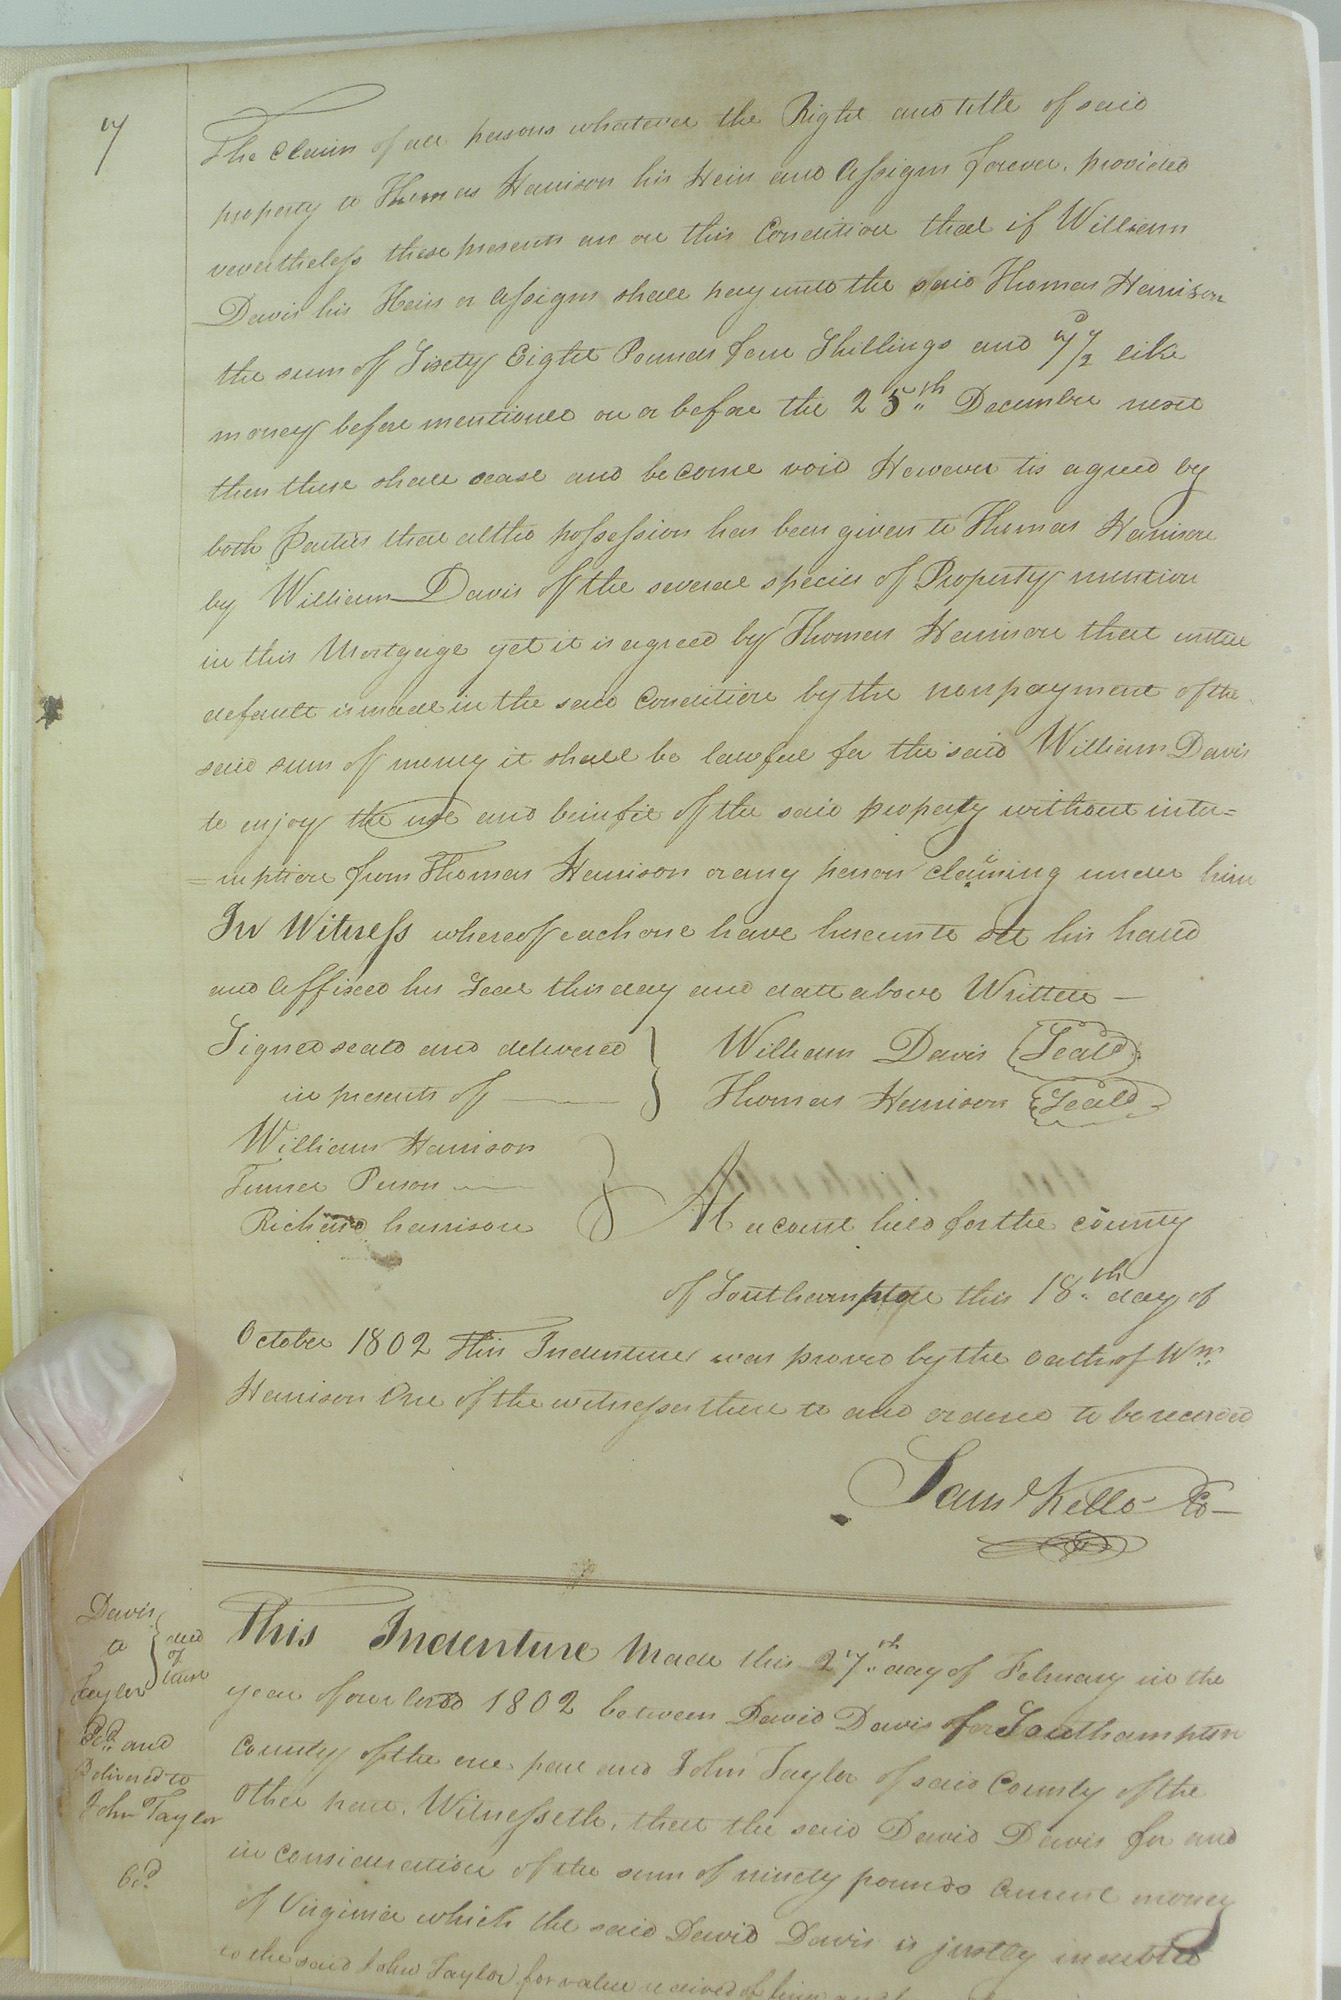 7
The Claim of all persons whatever the Right and title of said
property to Thomas Harrison his Heirs and Assigns forever, provided
nevertheless these presents are on this Condition that if William
Davis his Heirs or assigns shall pay unto the said Thomas Harrison
the sum of Sixty Eight Pounds four Shillings and 7d/2 like
money before mentioned on or before the 25th December next
then these shall cease and become void However tis agreed by
both Parties that altho possession has been given to Thomas Harrison
by William Davis of the several species of Property mention
in this Mortgage yet it is agreed by Thomas Harrison that untill
default is made in the said Condition by the nonpayment of the
said sum of money it shall be lawful for the said William Davis
to enjoy the use and benifit of the said property without inter=
=ruption from Thomas Harrison or any person claiming under him
In Witness whereof each one have hereunto set his hand
and affixed his Seal this day and date above Written —
Signed seald and delivered } William Davis (Seald)
in presents of — Thomas Harrison (Seald)
William Harrison
Turner Person
Richard harrison } At a court held for the county
of Southampton this 18th day of
October 1802 This Indenture was proved by the oath of Wm
Harrison One of the witnesses there to and ordered to be recorded
Saml Kello Co
Davis
to } deed of land
Taylor
Ed. and
Delivered to
John Taylor
This Indenture Made this 27th day of February in the
year of our lord 1802 between David Davis of Southampton
County of the one part and John Taylor of said County of the
Other part. Witnesseth, that the said David Davis for and
in Consideration of the sum of ninety pounds Current money
of Virginia which the said David Davis is justly indebted
to the said John Taylor for value received of him and